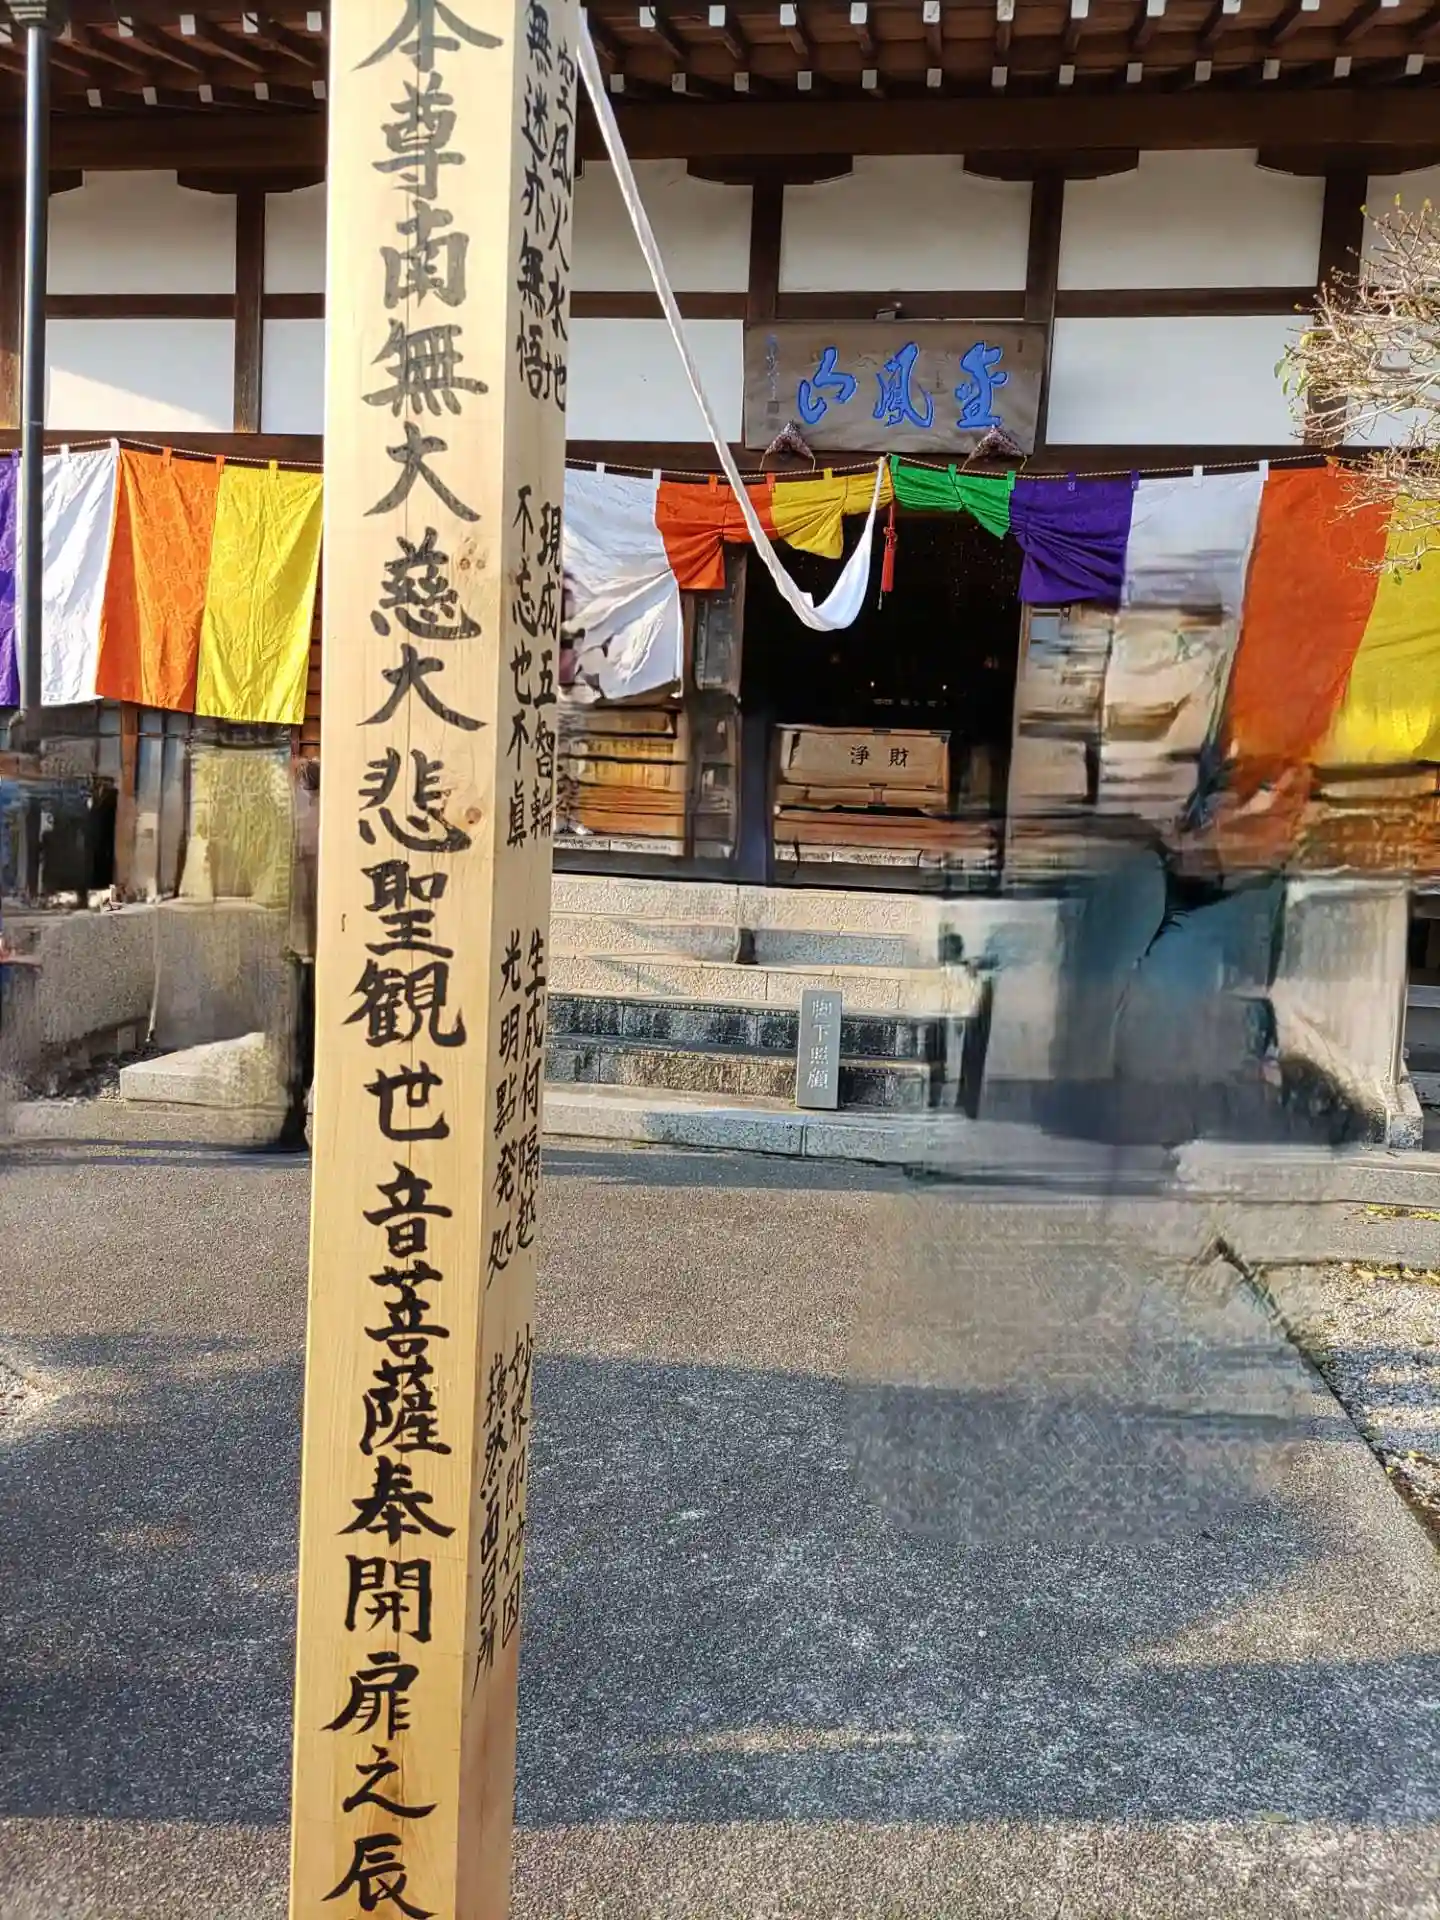 本尊南無大慈大悲聖観世音菩薩奉開扉之辰
空風火水地
無迷亦無悟
現成五智輪
不忘也不眞
生成何隔越
光明點発処
金鳳山
浄財
脚下照顧